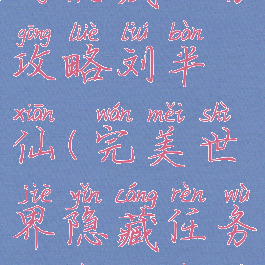 gōng lüè liú bàn
攻略刘半
xiān wán měi shì
仙(完美世
jiè yǐn cáng rèn wù
界隐藏任务